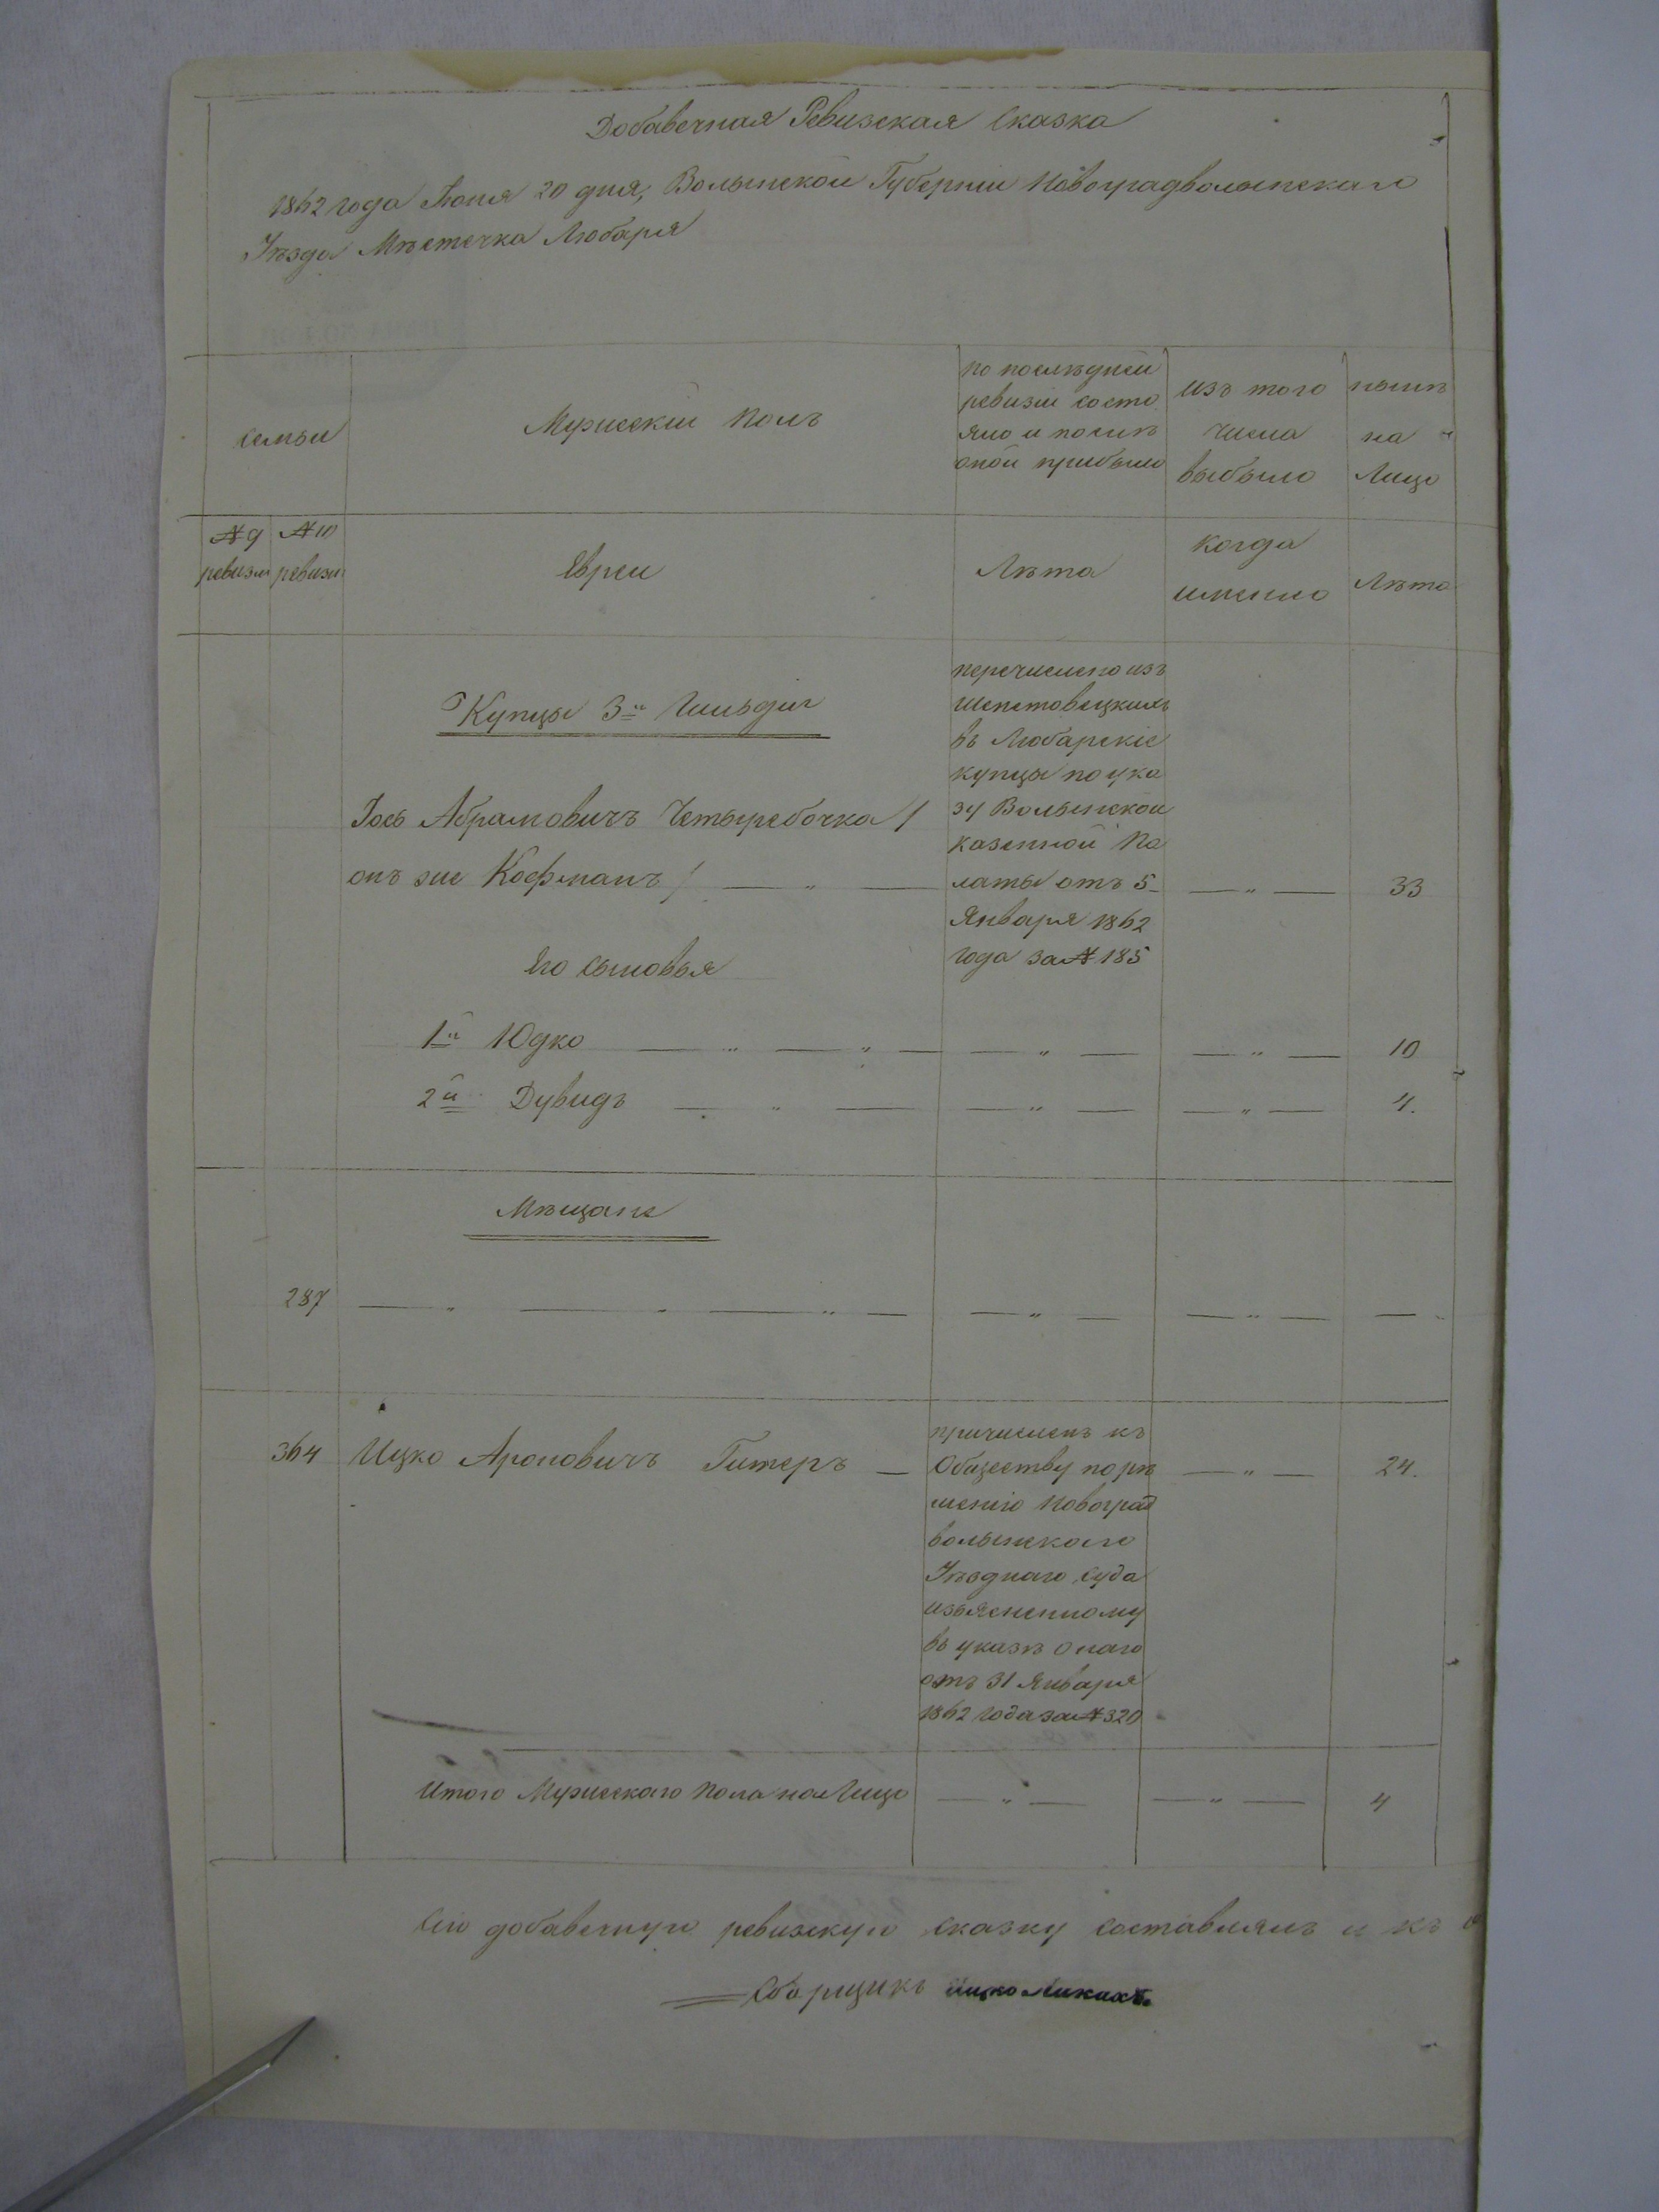 Добавечная Ревизская Сказка
1862 года Июня 20 дня, Волынской Губерніи Новоградволынскаго
Уѣзда Мѣстечка Любаря
Семьи
Мужескій Полъ
по послѣдней
ревизіи состо
яло и послѣ
оной прибыло
изъ того
числа
выбыло
нынѣ
на
Лицо
№ 9 № 10
ревизіи ревизіи
Евреи
Лѣта
когда
именно
Лѣта
Купцы 3й Гильдіи
перечислено изъ
Шепетовецкихъ
въ Любарскіе
купцы по ука
зу Волынской
казенной Па
латы отъ 5
Января 1862
года за № 185
Іось Абрамовичъ Четыребочка /
онъ же Кофманъ / — „ — — „ — 33
Его сыновья
1й Юдко — „ — „ — — „ — — „ — 10
2й Дувидъ — „ — — „ — — „ — 4.
Мѣщане
287 — „ — „ — „ — — „ — — „ — —
364 Ицко Ароновичъ Гитеръ — — „ — 24.
причисленъ къ
Обществу по рѣ
шенію Новоград
волынскаго
Уѣзднаго Суда
изъясненному
въ указѣ онаго
отъ 31 Января
1862 года за № 320
Итого Мужескаго Пола на Лицо — „ — — „ — 4
Сію добавечную ревизскую сказку составлялъ и къ
Сборщикъ Ицко